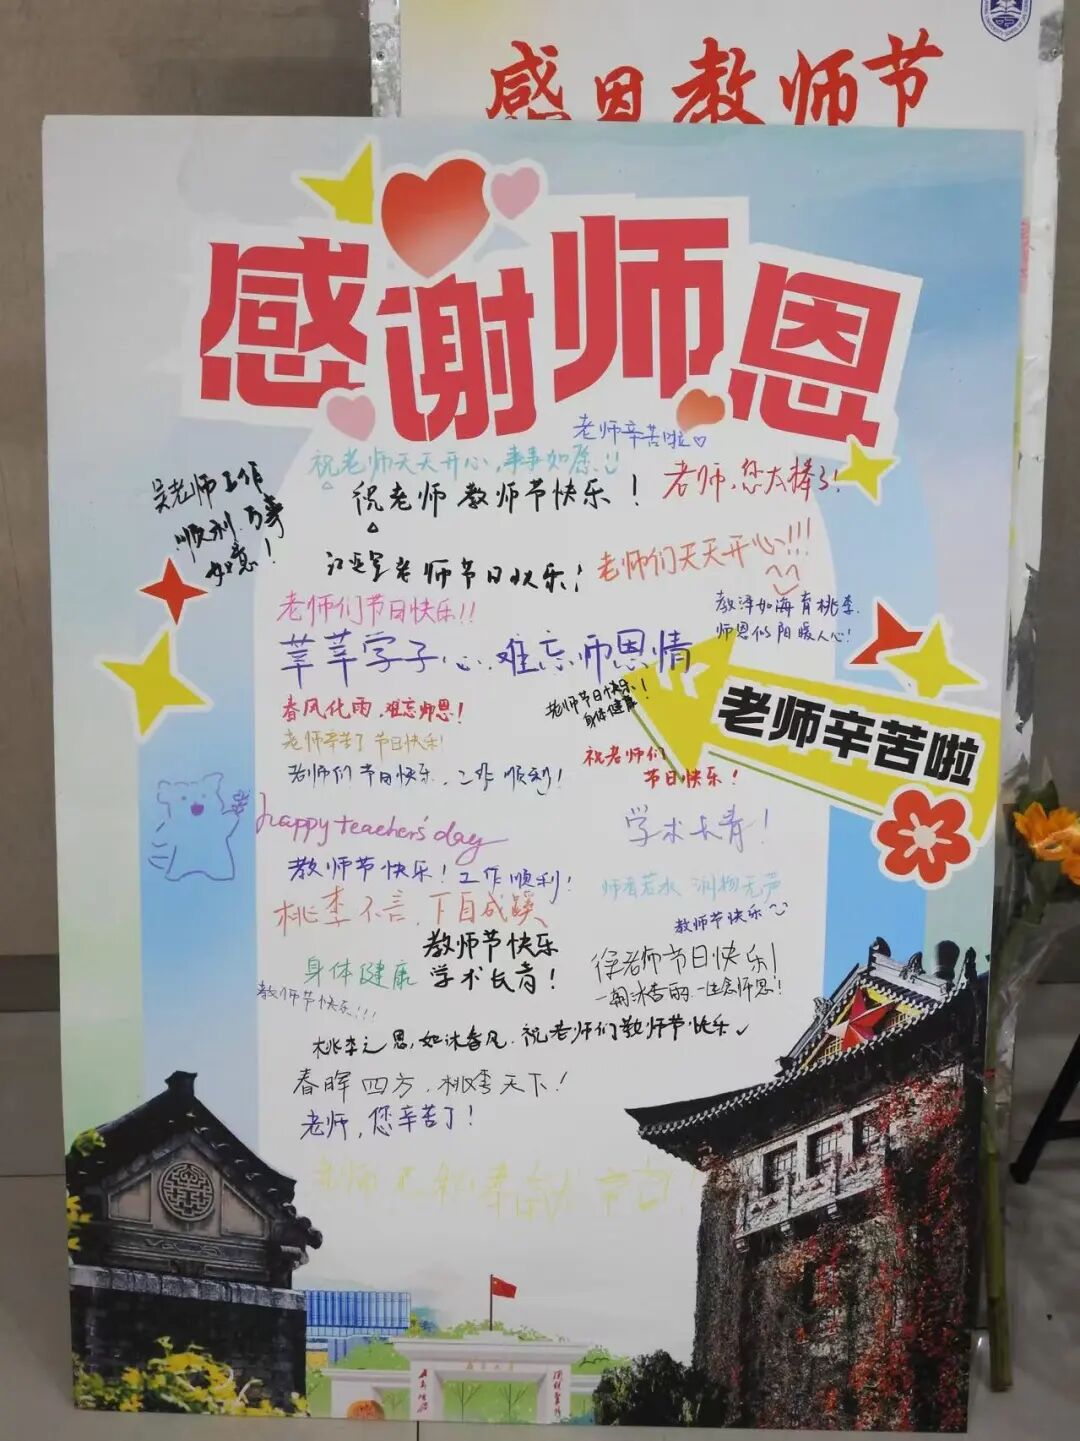 感恩教师节
感谢师恩
老师辛苦啦♡
祝老师天天开心,事事如愿
祝老师教师节快乐!
老师,您太棒了!
吴老师工作
顺利.万事
如意!
老师节日快乐!
老师们天天开心!!!
老师们节日快乐!!
教泽如海育桃李.
师恩似阳暖人心!
莘莘学子心.难忘师恩情
春风化雨,难忘师恩!
老师节日快乐!
身体健康!
老师辛苦啦
老师辛苦了节日快乐!
祝老师们
节日快乐!
老师们节日快乐.工作顺利!
happy teachers' day
学术长青!
教师节快乐!工作顺利!
师者若水 润物无声
桃李不言,下自成蹊
教师节快乐
教师节快乐
学术长青!
身体健康
徐老师节日快乐!
教师节快乐!!!
桃李之恩,如沐春风.祝老师们教师节快乐
春晖四方,桃李天下!
老师,您辛苦了!